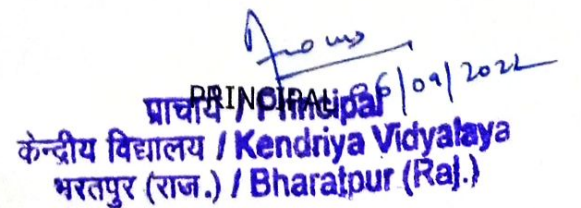 06/09/2022
PRINCIPAL
प्राचार्य / Principal
केन्द्रीय विद्यालय / Kendriya Vidyalaya
भरतपुर (राज.) / Bharatpur (Raj.)